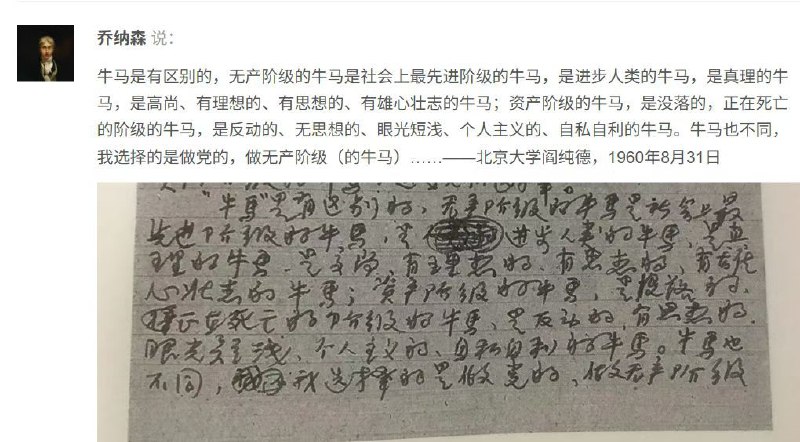 乔纳森 说：
牛马是有区别的，无产阶级的牛马是社会上最先进阶级的牛马，是进步人类的牛马，是真理的牛
马，是高尚、有理想的、有思想的、有雄心壮志的牛马；资产阶级的牛马，是没落的，正在死亡
的阶级的牛马，是反动的、无思想的、眼光短浅、个人主义的、自私自利的牛马。牛马也不同，
我选择的是做党的，做无产阶级（的牛马）……——北京大学阎纯德，1960年8月31日
“牛马”是有区别的，无产阶级的牛马是社会上最
先进阶级的牛马，是进步人类的牛马，是真
理的牛马，是高尚，有理想的、有思想的、有雄
心壮志的牛马；资产阶级的牛马，是没落的、
正在死亡的阶级的牛马，是反动的、无思想的、
眼光短浅、个人主义的、自私自利的牛马。牛马也
不同，我选择的是做党的、做无产阶级